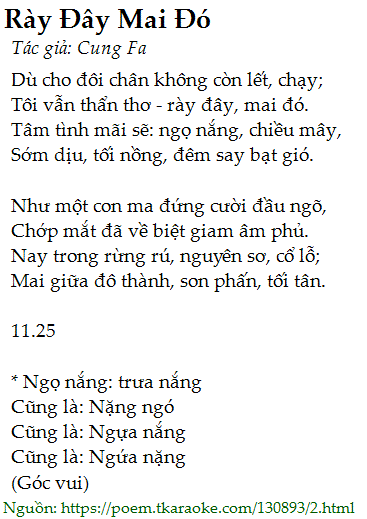 Rày Đây Mai Đó
Tác giả: Cung Fa
Dù cho đôi chân không còn lết, chạy;
Tôi vẫn thẩn thơ - rày đây, mai đó.
Tâm tình mãi sẽ: ngọ nắng, chiều mây,
Sớm dịu, tối nồng, đêm say bạt gió.
Như một con ma đứng cười đầu ngõ,
Chớp mắt đã về biệt giam âm phủ.
Nay trong rừng rú, nguyên sơ, cổ lỗ;
Mai giữa đô thành, son phấn, tối tân.
11.25
* Ngọ nắng: trưa nắng
Cũng là: Nặng ngó
Cũng là: Ngựa nắng
Cũng là: Ngứa nặng
(Góc vui)
Nguồn: https://poem.tkaraoke.com/130893/2.html